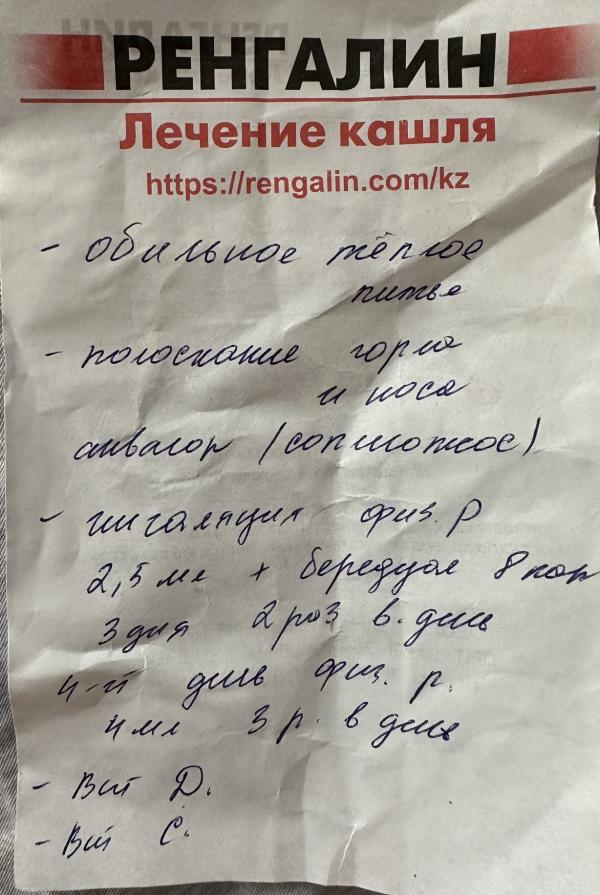 РЕНГАЛИН
Лечение кашля
https://rengalin.com/kz
- обильное тёплое
питье
- полоскание горла
и носа
аквалор (сопли
- ингаляция физ. р
2,5 мл + беродуал 8 кап
3 дня 2 раз в. день
4-й день физ. р.
4 мл 3 р. в день
- Вит D.
- Вит C.